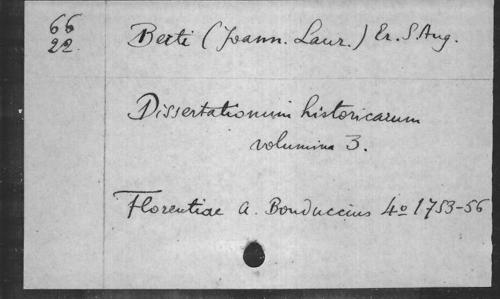 66
22.
Berti (Joann. Laur.) Er. S. Aug.
Dissertationum historicarum
volumina 3.
Florentiae A. Bonduccius 4o 1753-56